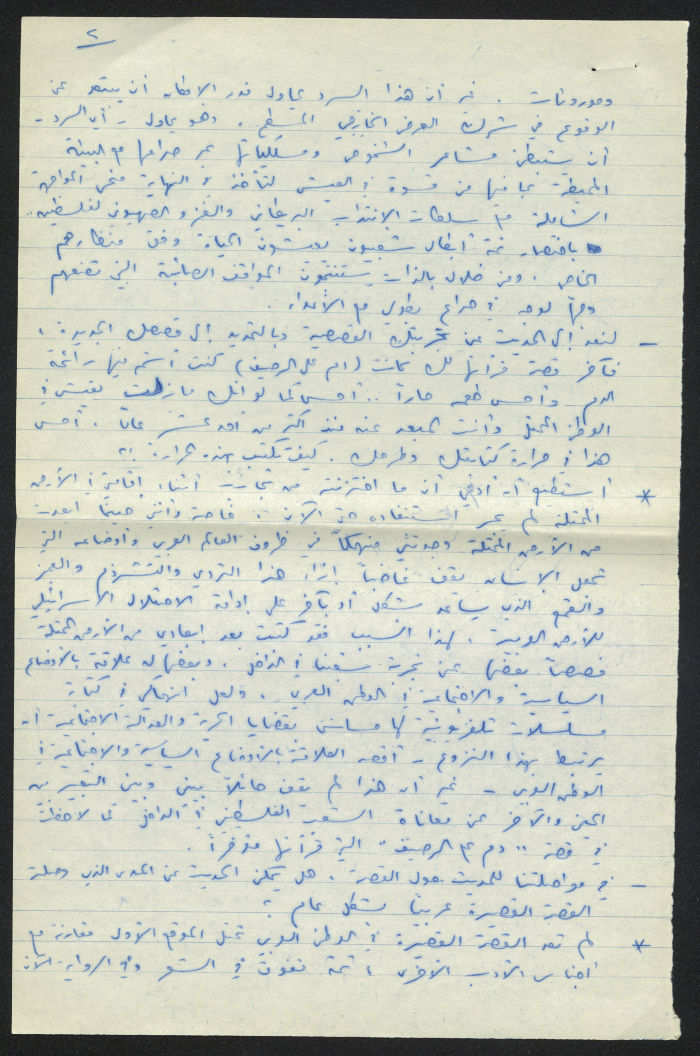 ٢
وموروثات . غير أن هذا السرد يحاول قدر الامكان أن يبتعد عن
الوقوع في شرك العرض الخارجي المسطح . وهو يحاول - أي السرد -
أن يستبطن مشاعر الشخوص ومسلكياتها عبر صراعها مع البيئة
المحيطة بما فيها من قسوة في العيش لتأخذ في النهاية منحى المواجهة
الشاملة مع سلطات الانتداب البريطاني والغزو الصهيوني لفلسطين ..
باختصار ثمة أبطال شعبيون يعيشون الحياة وفق منظارهم
الخاص . ومن خلال بالذات يستنتجون المواقف الصائبة التي تضعهم
وجهاً لوجه في صراع بطولي مع الأعداء .
- لنعد إلى الحديث عن تجربتك القصصية وبالتحديد إلى قصصك الجديدة ،
فآخر قصة قرأتها لك كانت (دم على الرصيف) كنت أشتم فيها رائحة
الدم وأحس طعمه حاراً .. أحس كما لو انك مازلت تعيش في
الوطن المحتل وأنت المبعد عنه منذ أكثر من أحد عشر عاماً . أحس
هذا في حرارة كتابتك وطرحك . كيف تكتب بهذه الحرارة ؟
* أستطيع أن أدعي أن ما اختزنته من تجارب أثناء اقامتي في الأرض
المحتلة لم يجر استنفاده حتى الآن . خاصة وأنني حينما أبعدت
من الأرض المحتلة وجدتني منهمكاً في ظروف العالم العربي وأوضاعه التي
تجعل الانسان يقف غاضباً ازاء هذا التردي والتشرذم والعجز
والقمع الذي يساعد بشكل أو بآخر على إدامة الاحتلال الاسرائيلي
للأرض العربية . لهذا السبب فقد كتبت بعد إبعادي من الأرض المحتلة
قصصاً بعضها عن تجربة شعبنا في الداخل . وبعضها له علاقة بالأوضاع
السياسية والاجتماعية في الوطن العربي . ولعل انهماكي في كتابة
مسلسلات تلفزيونية لها مساس بقضايا الحرية والعدالة الاجتماعية أن
يرتبط بهذا النزوع - أقصد العلاقة بالأوضاع السياسية والاجتماعية في
الوطن العربي - غير أن هذا لم يقف حائلاً بيني وبين التعبير بين
الحين والآخر عن معاناة الشعب الفلسطيني في الداخل كما لاحظت
في قصة " دم على الرصيف " التي قرأتها مؤخراً .
- في مواصلتنا للحديث حول القصة . هل يمكن الحديث عن المدى الذي وصلته
القصة القصيرة عربياً بشكل عام ؟
* لم تعد القصة القصيرة في الوطن العربي تحتل الموقع الأول مقارنة مع
أجناس الأدب الأخرى ، ثمة تفوق في الشعر وفي الرواية الآن